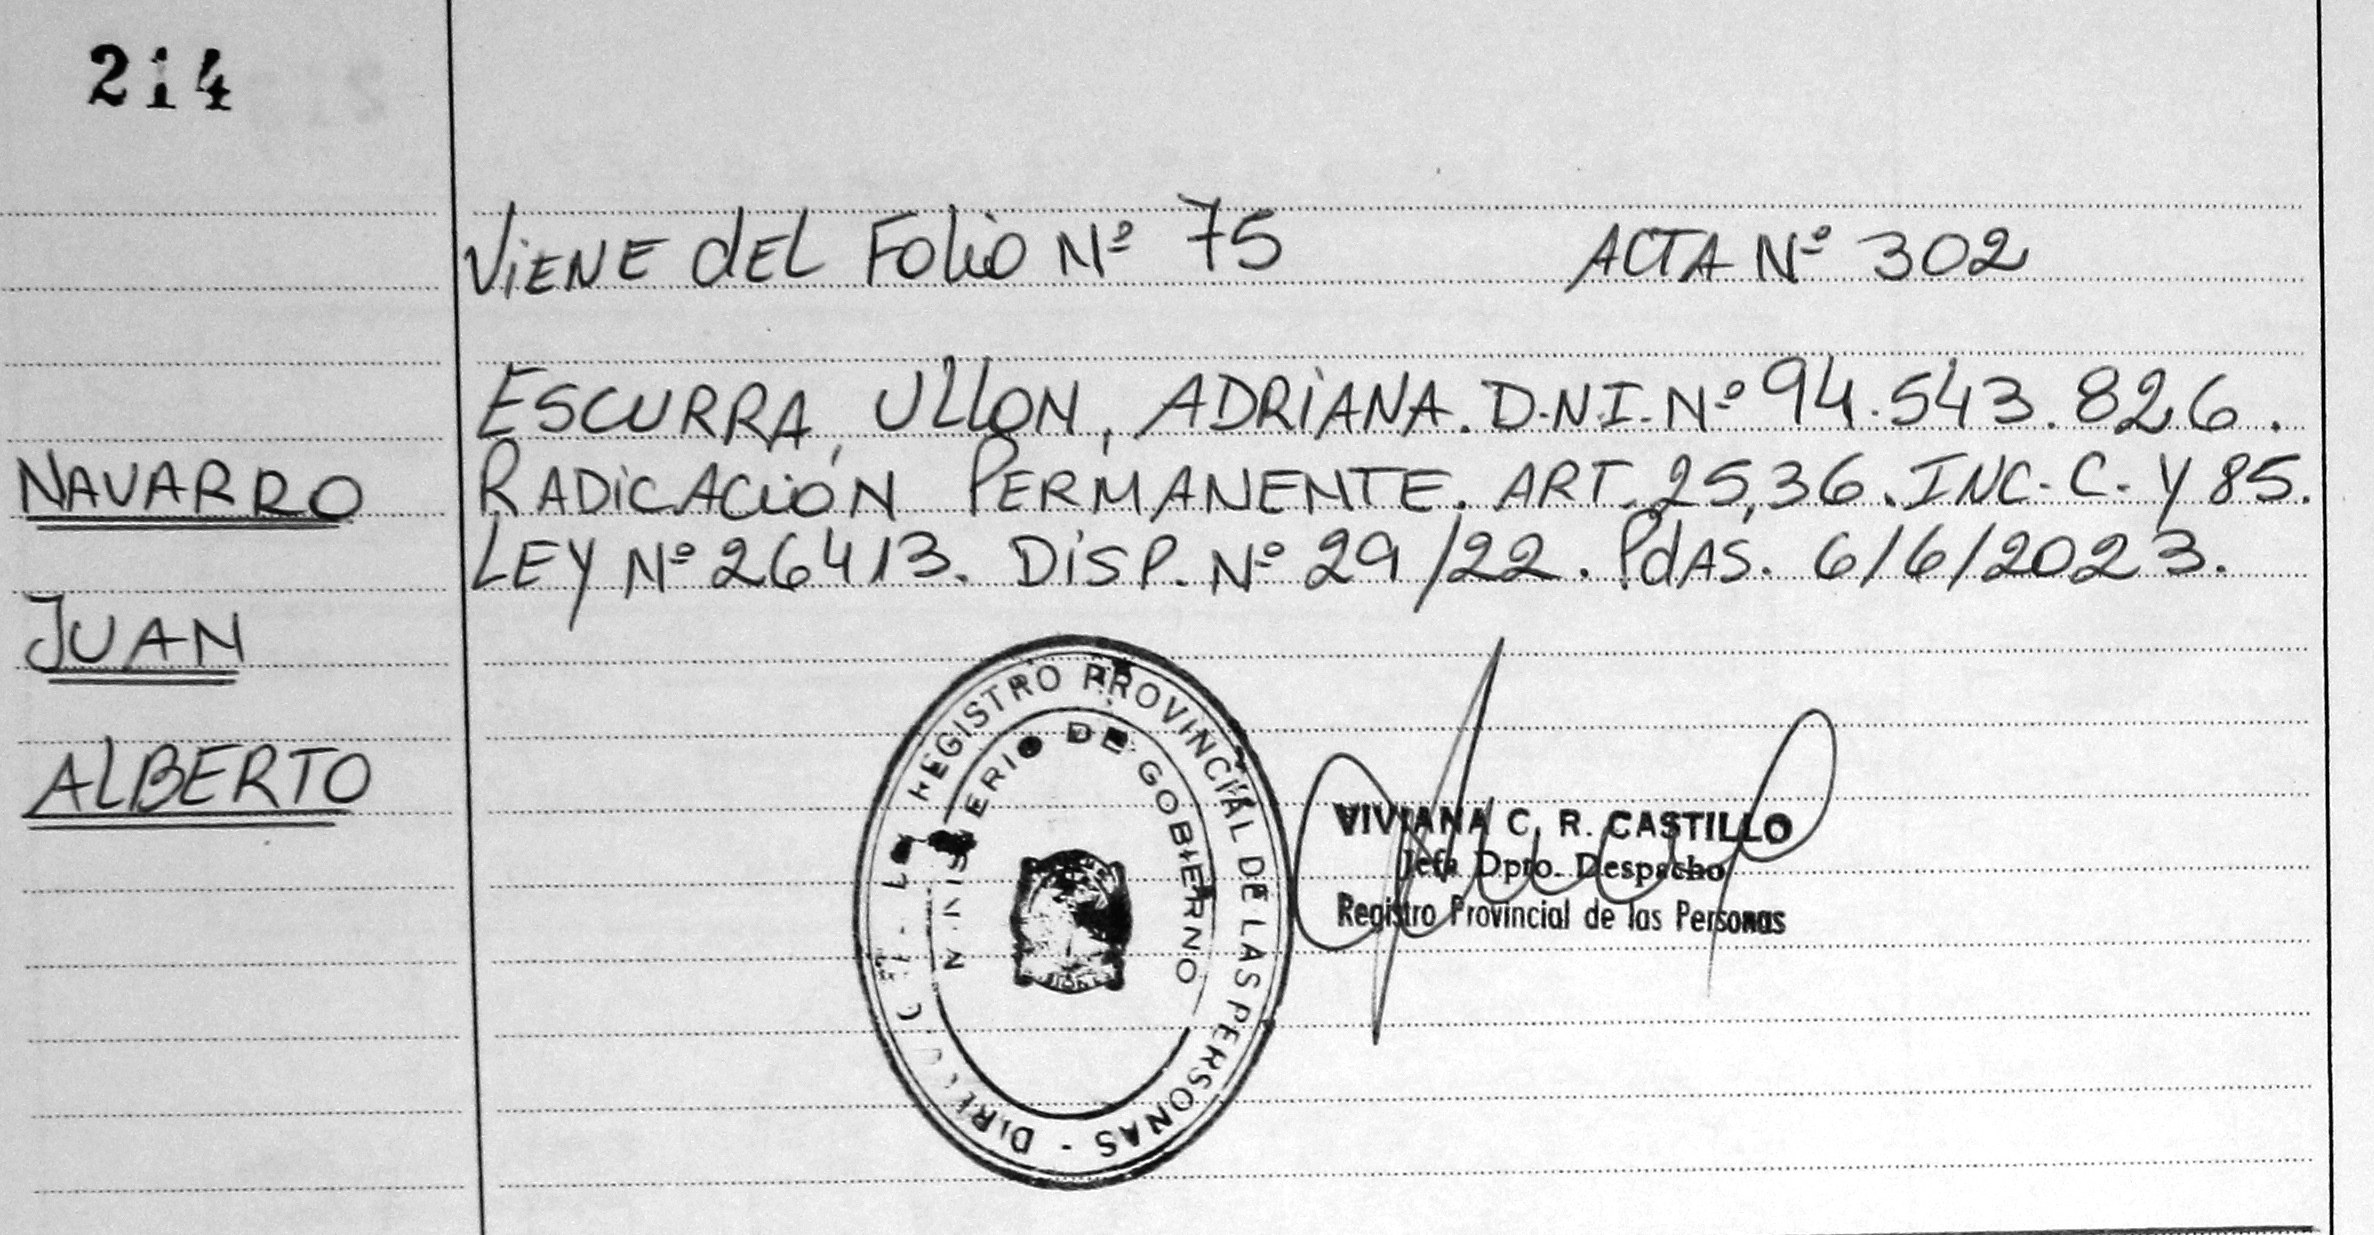 214
VIENE DEL FOLIO Nº 75 ACTA Nº 302
ESCURRA, ULLON, ADRIANA. D.N.I. Nº 94.543.826.
NAVARRO
RADICACIÓN PERMANENTE. ART. 25,36. INC. C. Y 85.
LEY Nº 26413. DISP. Nº 29/22. PDAS. 6/6/2023.
JUAN
ALBERTO
REGISTRO PROVINCIAL DE LAS PERSONAS -
DE GOBIERNO
VIVIANA C. R. CASTILLO
Jefa Dpto. Despacho
Registro Provincial de las Personas